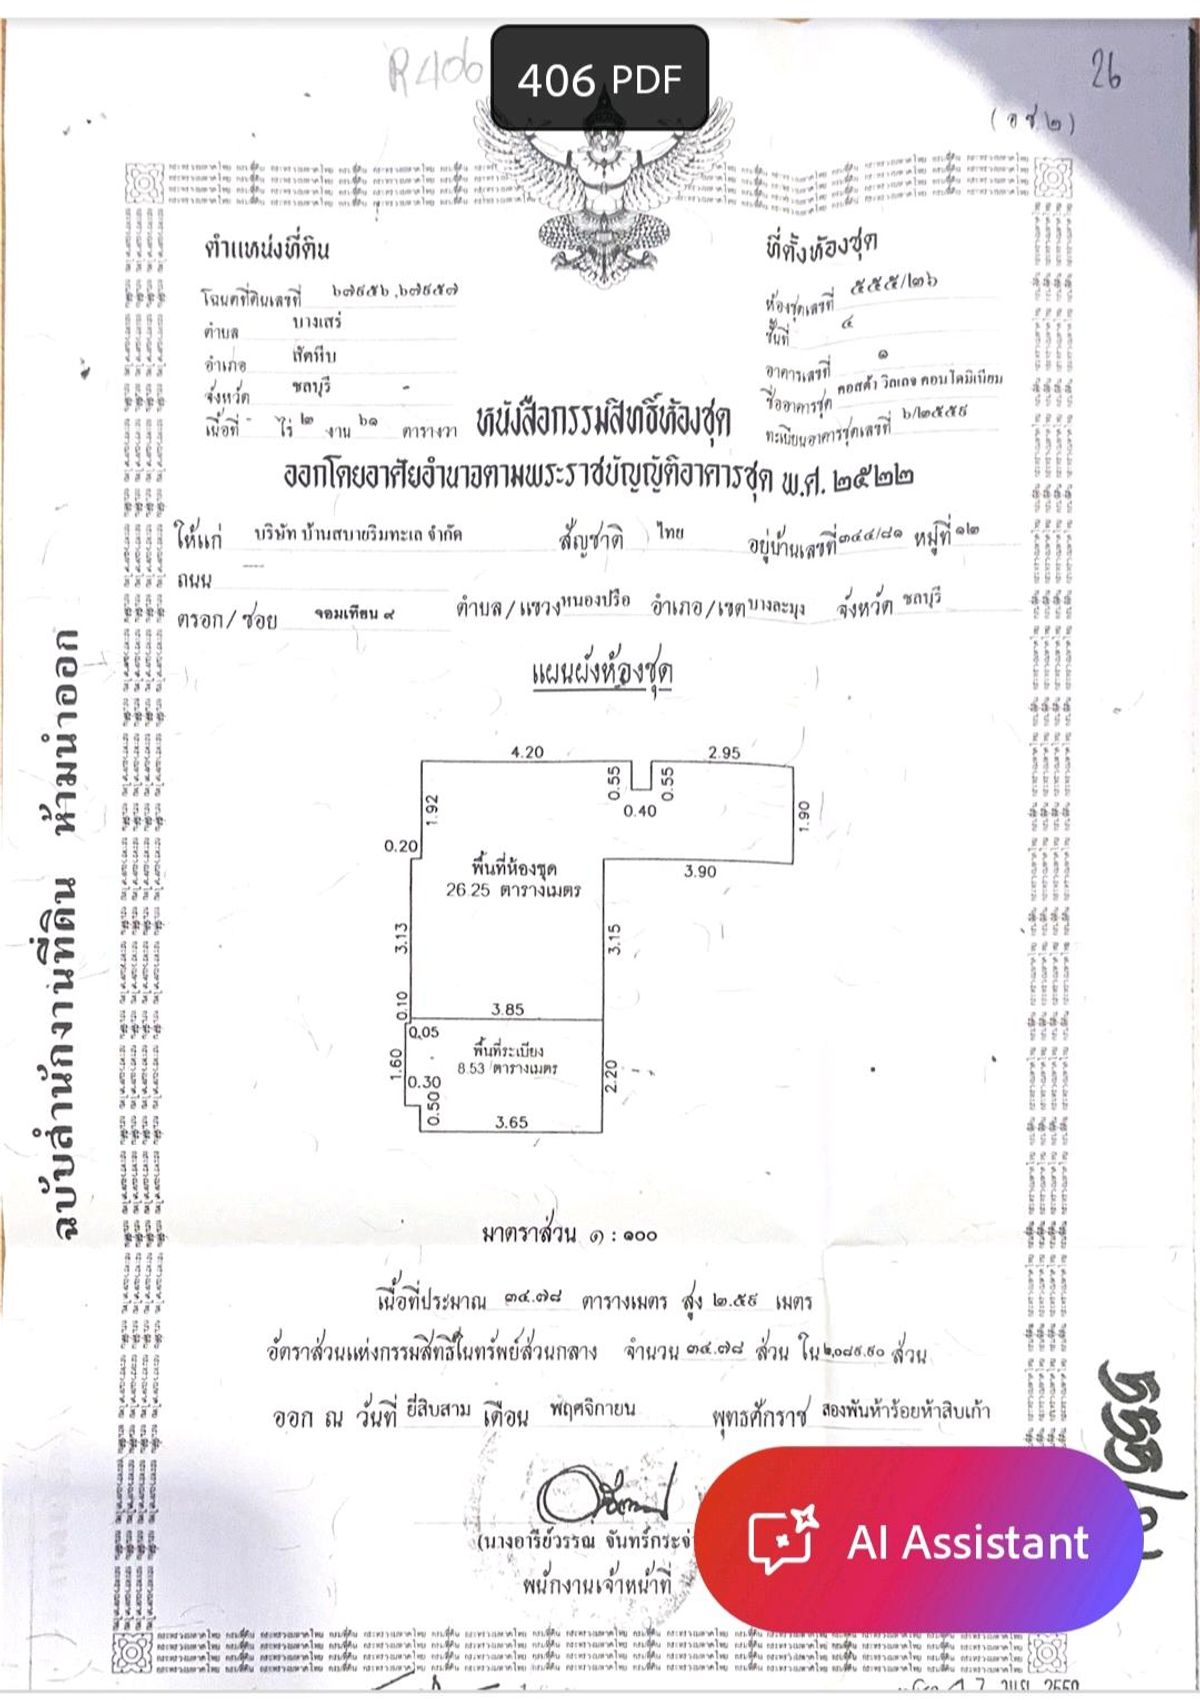 406 PDF
R406
26
(อ.ช.๒)
ตำแหน่งที่ดิน
โฉนดที่ดินเลขที่ ๖๗๙๕๖,๖๗๙๕๗
ตำบล บางเสร่
อำเภอ สัตหีบ
จังหวัด ชลบุรี -
เนื้อที่ - ไร่ ๒ งาน ๖๑ ตารางวา
ที่ตั้งห้องชุด
ห้องชุดเลขที่ ๕๕๕/๒๖
ชั้นที่ ๔
อาคารเลขที่ ๑
ชื่ออาคารชุด คอสต้า วิลเลจ คอนโดมิเนียม
ทะเบียนอาคารชุดเลขที่ ๖/๒๕๕๙
หนังสือกรรมสิทธิ์ห้องชุด
ออกโดยอาศัยอำนาจตามพระราชบัญญัติอาคารชุด พ.ศ. ๒๕๒๒
ให้แก่ บริษัท บ้านสบายริมทะเล จำกัด สัญชาติ ไทย อยู่บ้านเลขที่ ๓๔๔/๘๑ หมู่ที่ ๑๒
ถนน
ตรอก/ซอย จอมเทียน ๙ ตำบล/แขวง หนองปรือ อำเภอ/เขต บางละมุง จังหวัด ชลบุรี
แผนผังห้องชุด
4.20 2.95
0.55 0.55
0.40
1.92 1.90
0.20
พื้นที่ห้องชุด
26.25 ตารางเมตร
3.90
3.13 3.15
0.10
3.85
0.05
พื้นที่ระเบียง
8.53 ตารางเมตร
1.60 2.20
0.30
0.50
3.65
มาตราส่วน ๑ : ๑๐๐
เนื้อที่ประมาณ ๓๔.๗๘ ตารางเมตร สูง ๒.๕๙ เมตร
อัตราส่วนแห่งกรรมสิทธิ์ในทรัพย์ส่วนกลาง จำนวน ๓๔.๗๘ ส่วน ใน ๒,๐๘๙.๙๐ ส่วน
ออก ณ วันที่ ยี่สิบสาม เดือน พฤศจิกายน พุทธศักราช สองพันห้าร้อยห้าสิบเก้า
(นางอารีย์วรรณ จันทร์กระจ่
พนักงานเจ้าหน้าที่
AI Assistant
ฉบับสำนักงานที่ดิน ห้ามนำออก